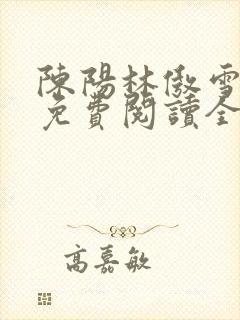 陳陽林傲雪
免費閱讀全
高嘉敏